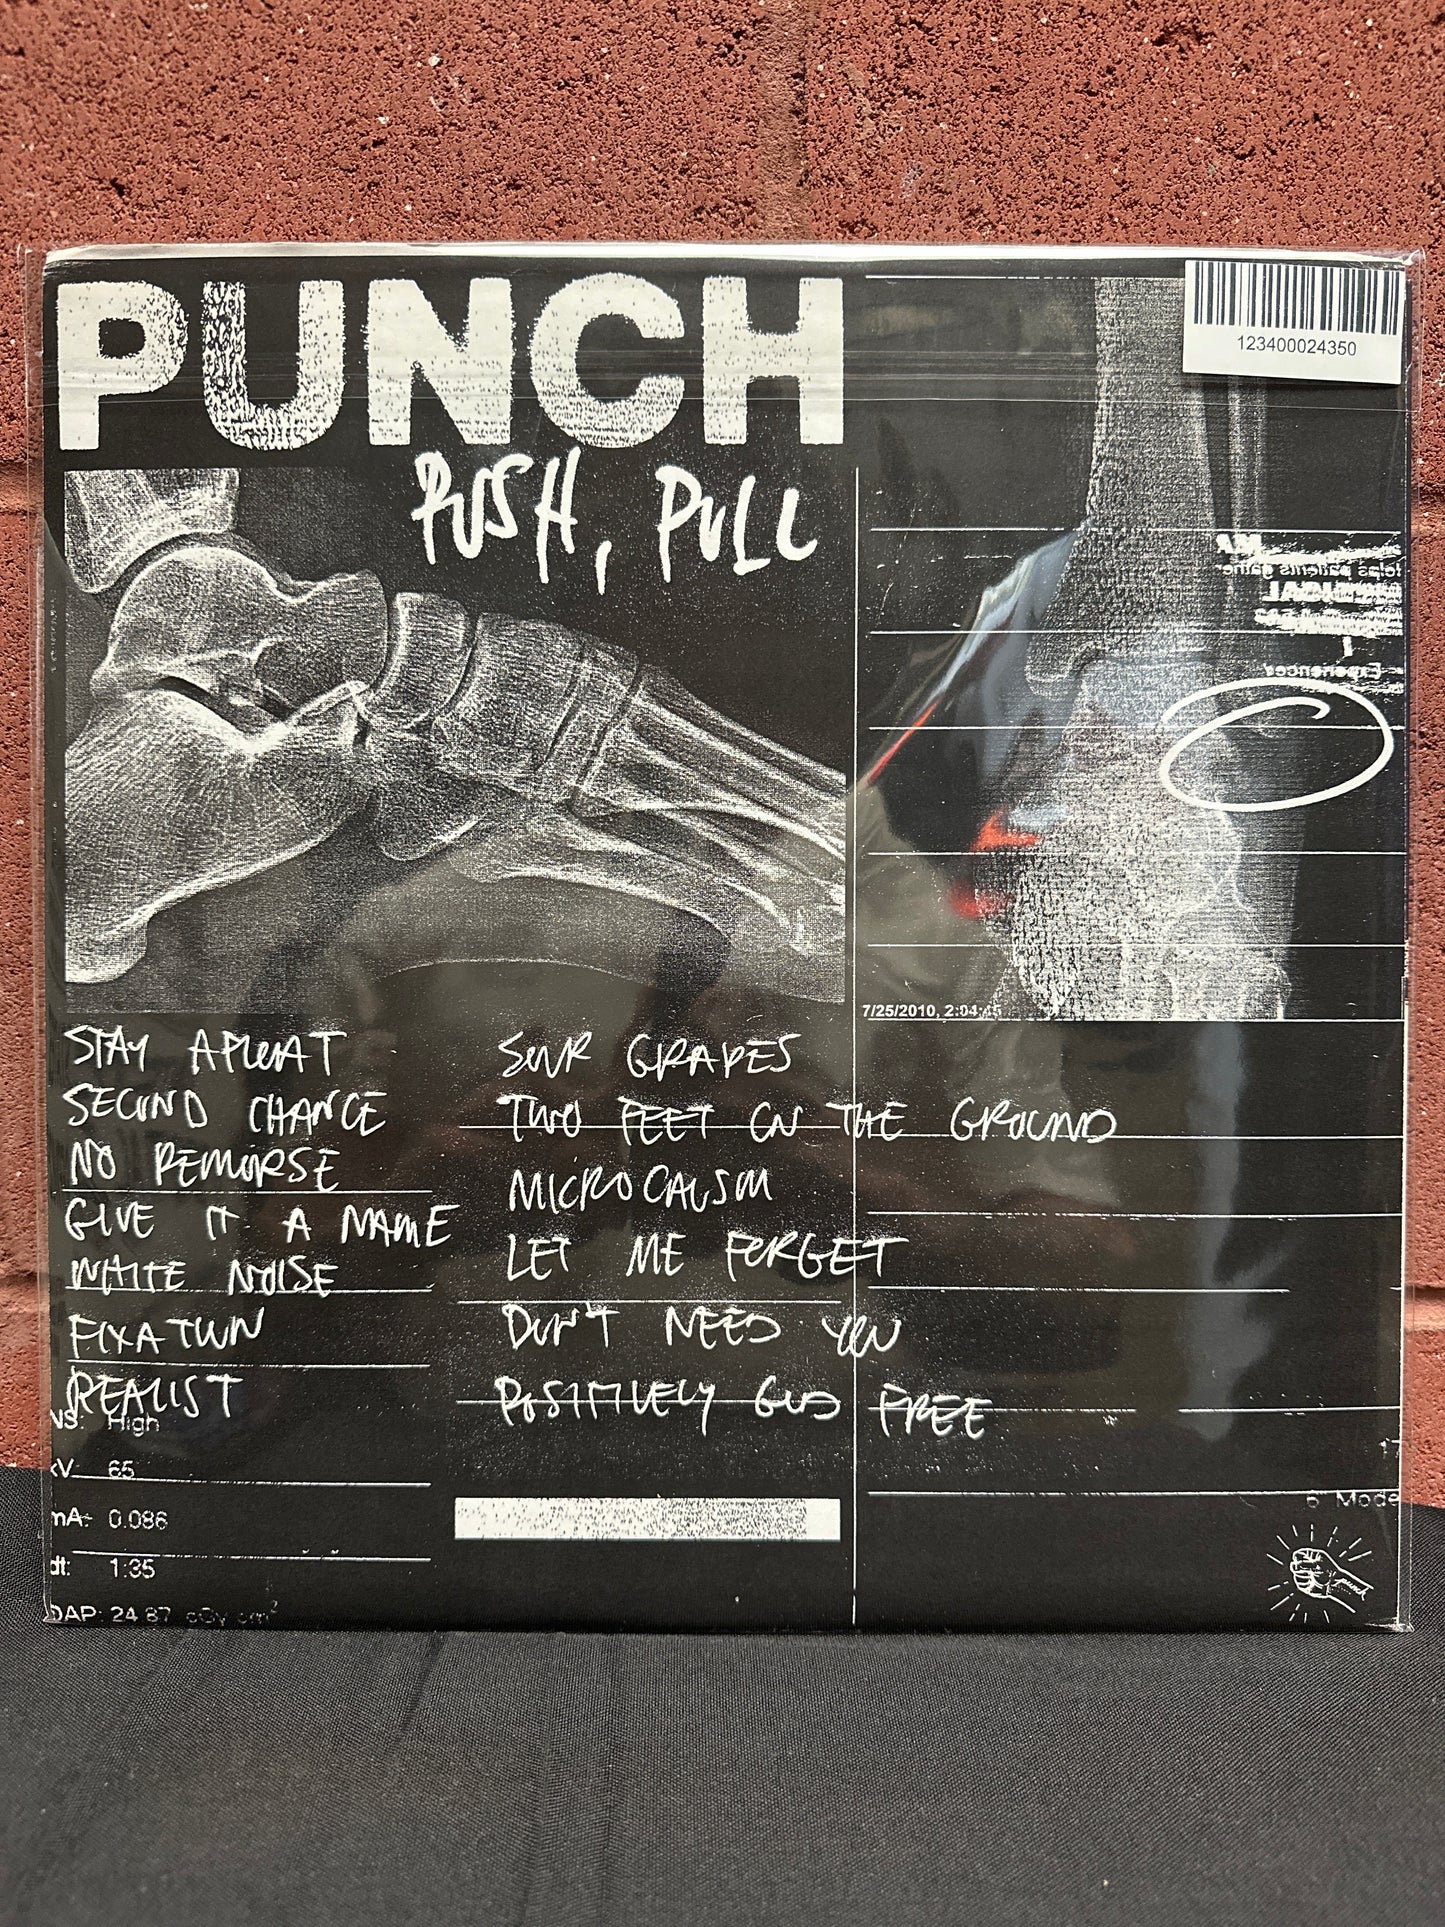 PUNCH
PUSH, PULL
123400024350
7/25/2010, 2:04:45
STAY AFLOAT
SECOND CHANCE
NO REMORSE
GIVE IT A NAME
WHITE NOISE
FIXATION
REALIST
SOUR GRAPES
TWO FEET ON THE GROUND
MICROCAUSM
LET ME FORGET
DON'T NEED YOU
POSITIVELY GOD FREE
High
kV 65
mA: 0.086
dt: 1:35
DAP: 24.87 cGy cm²
17
6 Mode
punch